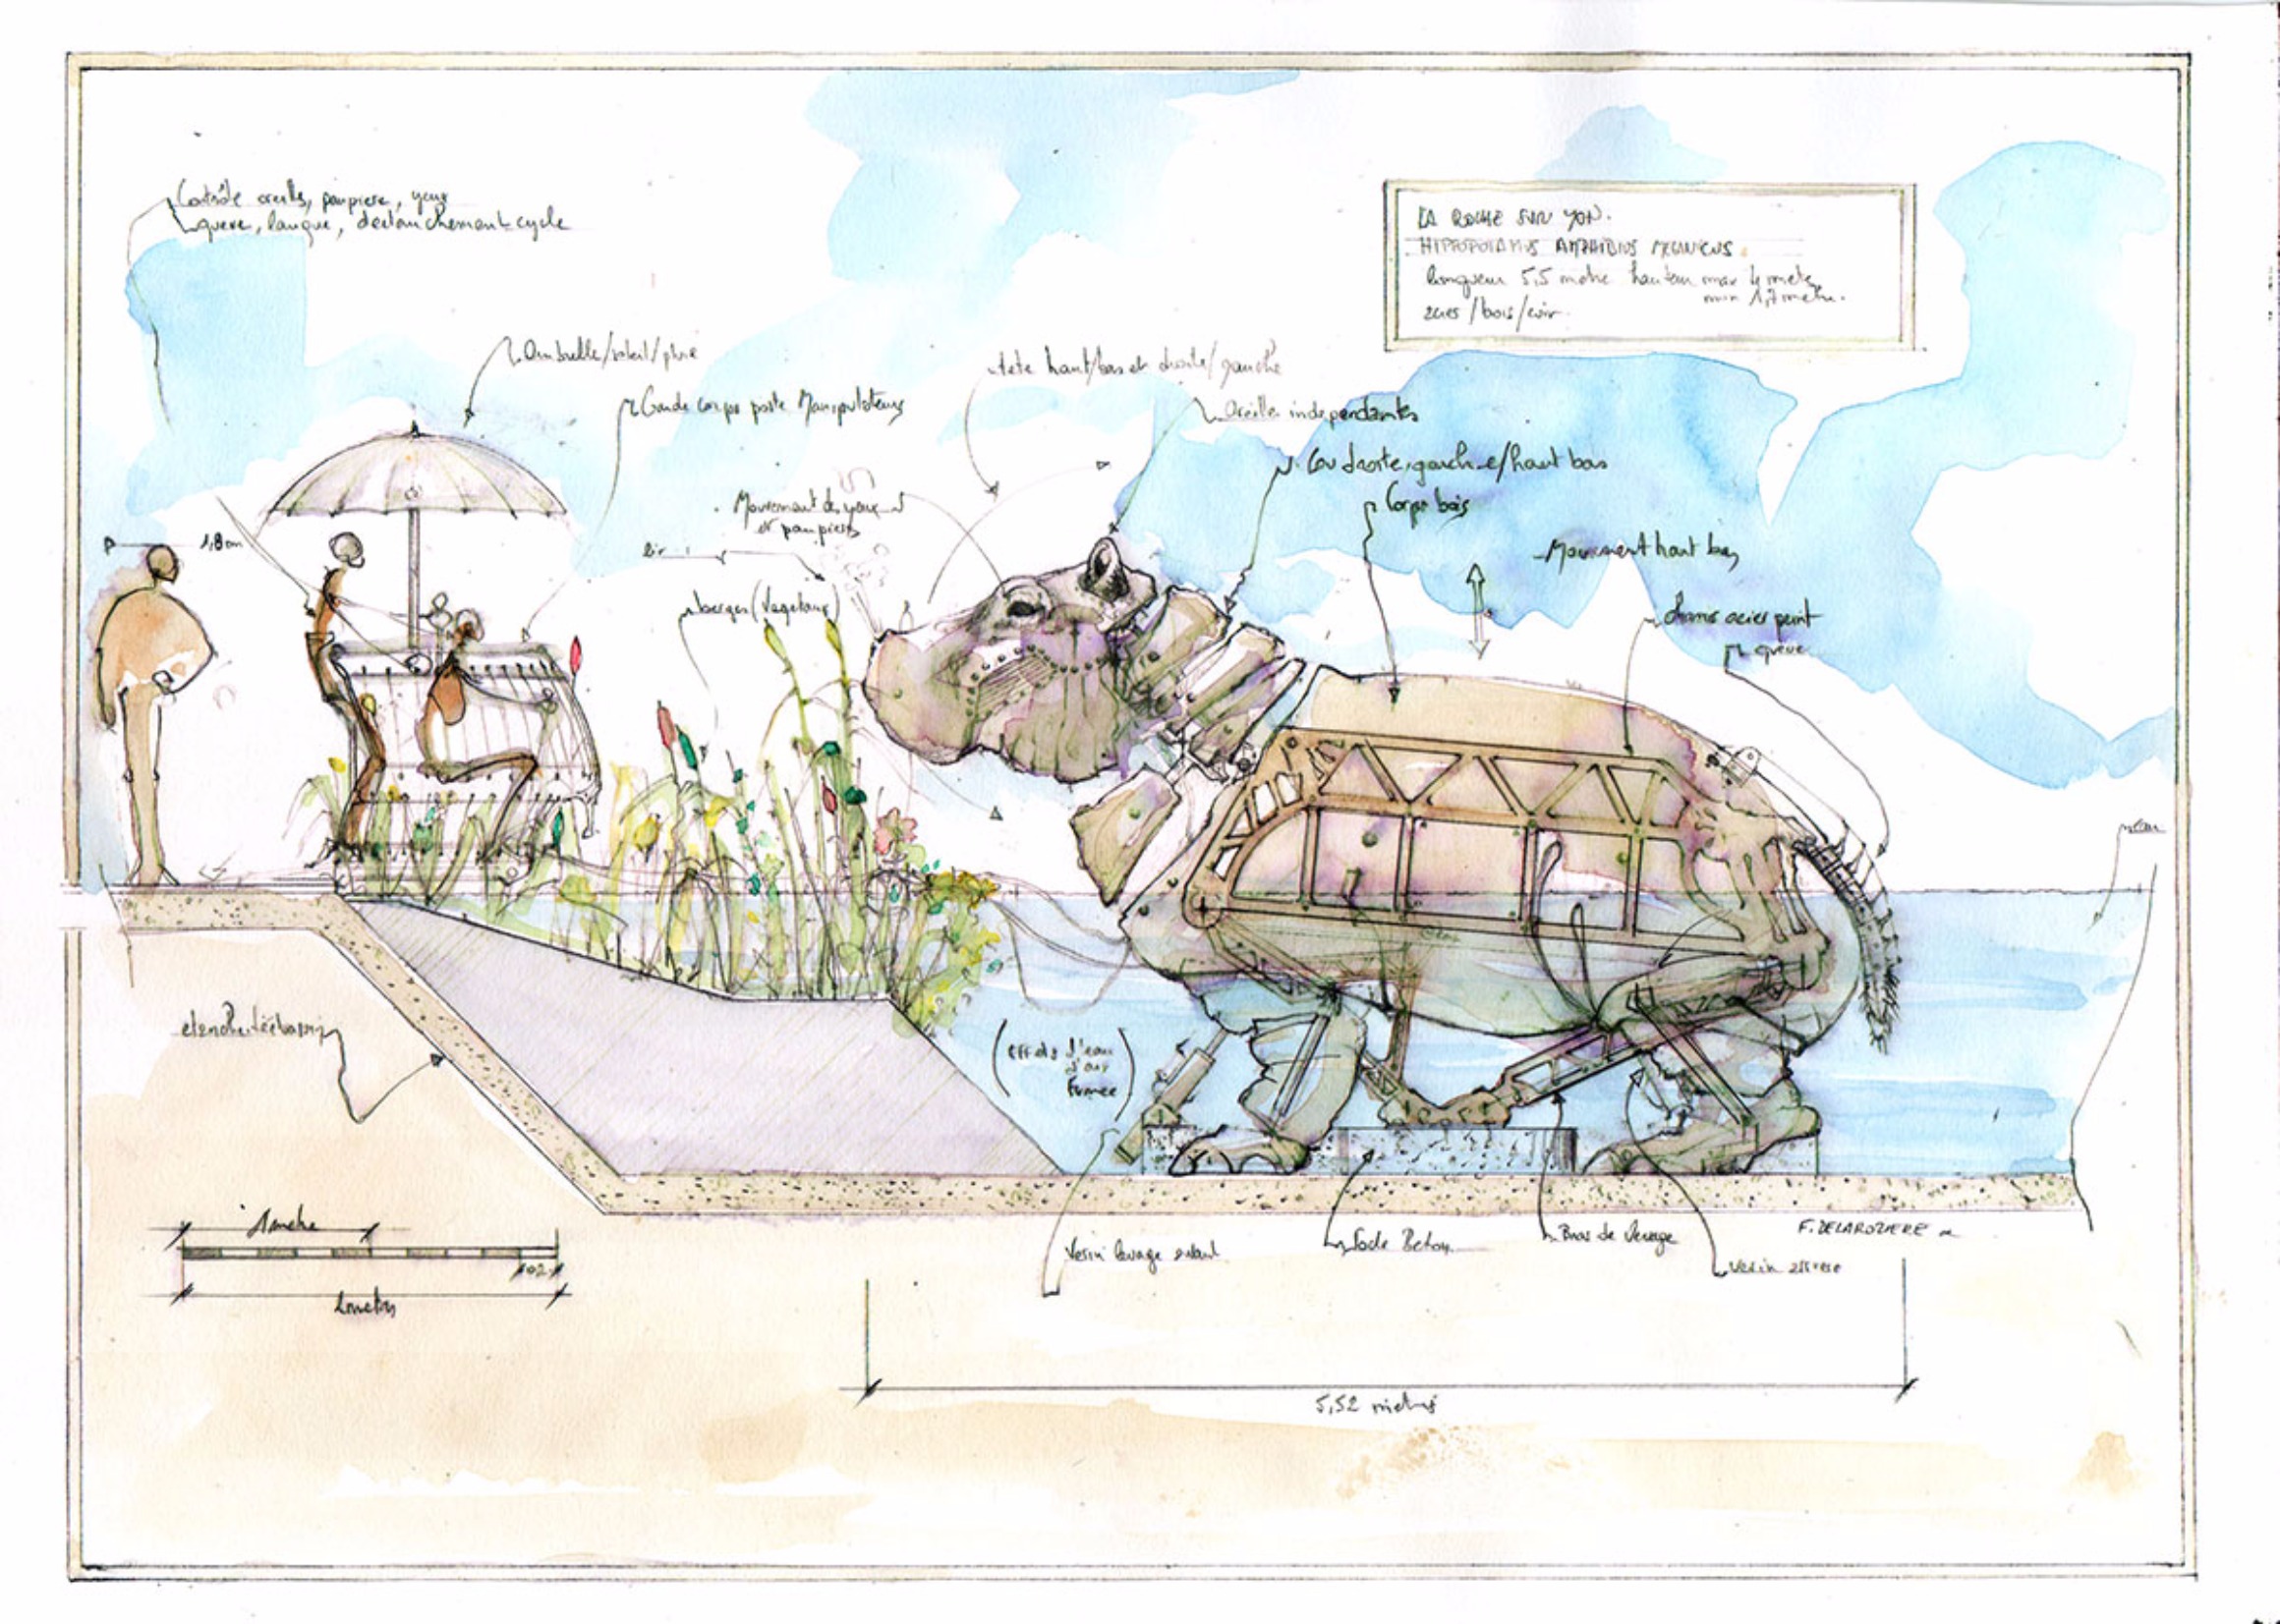 Contrôle oreills, paupiere, yeux
queue, langue, declanchement cycle
LA ROCHE SUR YON.
HIPPOPOTAMUS AMPHIBIUS MECANICUS.
longueur 5,5 metre hauteur max 4 metre
min 1,7 metre.
acier/bois/cuir.
Ombrelle/soleil/pluie
tete haut/bas et droite/gauche
Garde corps poste Manipulateurs
Oreilles independantes
Cou droite,gauche/haut bas
Corps bois
Mouvement des yeux
et paupieres
1,8 m
Mouvement haut bas
berges (Vegetaux)
chassis acier peint
queue
eau
(effets d'eau
d'air
fumee)
1 metre
0,2
2 metres
Verin levage avant
Socle Beton
Bras de levage
F. DELAROZIERE
Verin
5,52 metres